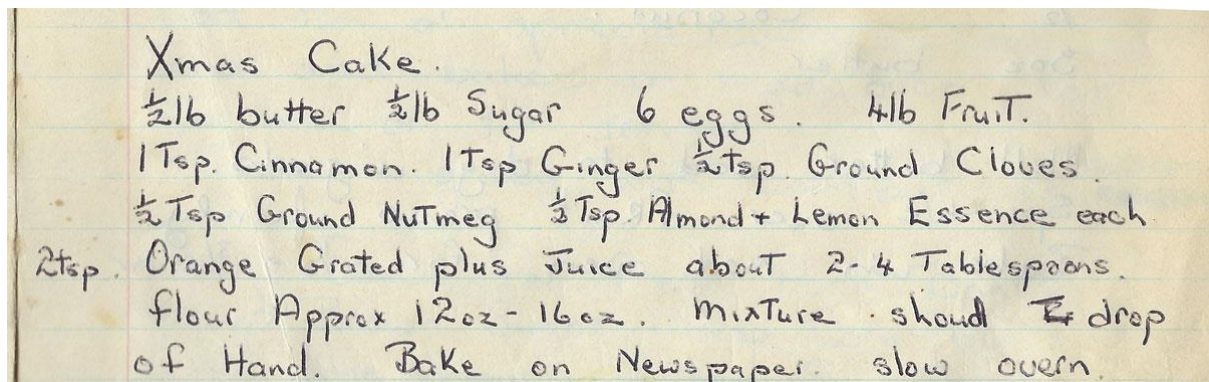 Xmas Cake.
½lb butter ½lb Sugar 6 eggs. 4lb Fruit.
1 Tsp. Cinnamon. 1 Tsp Ginger ½tsp. Ground Cloves.
½ Tsp Ground Nutmeg ½ Tsp. Almond + Lemon Essence each.
2tsp. Orange Grated plus Juice about 2-4 Tablespoons.
flour Approx 12oz-16oz. mixture shoud drop
of Hand. Bake on Newspaper. slow overn.